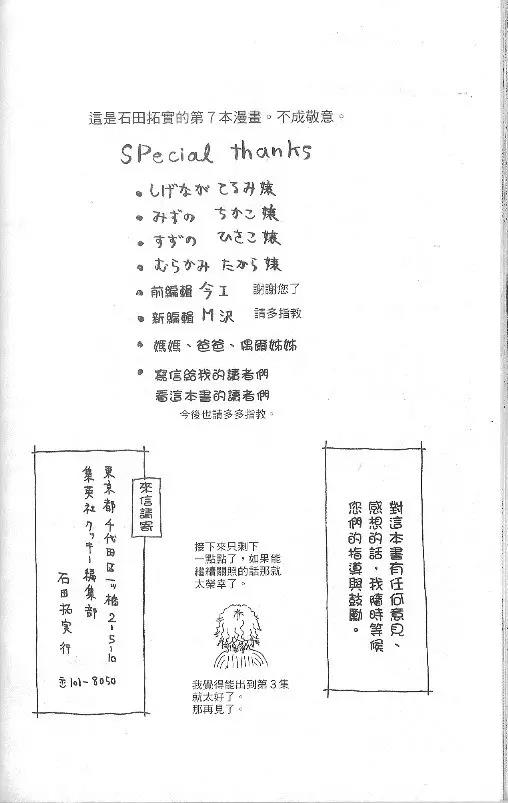 這是石田拓實的第7本漫畫。不成敬意。
SPecial thanks
• しげなが てるみ嬢
• みずの ちかこ嬢
• すずの ひさこ嬢
• むらかみ たから嬢
• 前編輯 今I 謝謝您了
• 新編輯 M沢 請多指教
• 媽媽、爸爸、偶爾姊姊
• 寫信給我的讀者們
看這本書的讀者們
今後也請多多指教。
對這本書有任何意見、
感想的話，我隨時等候
您們的指導與鼓勵。
接下來只剩下
一點點了，如果能
繼續關照的話那就
太榮幸了。
我覺得能出到第3集
就太好了。
那再見了。
來信請寄
東京都千代田区一ッ橋2-5-10
集英社 クッキー編集部
石田拓実 行
〒101-8050